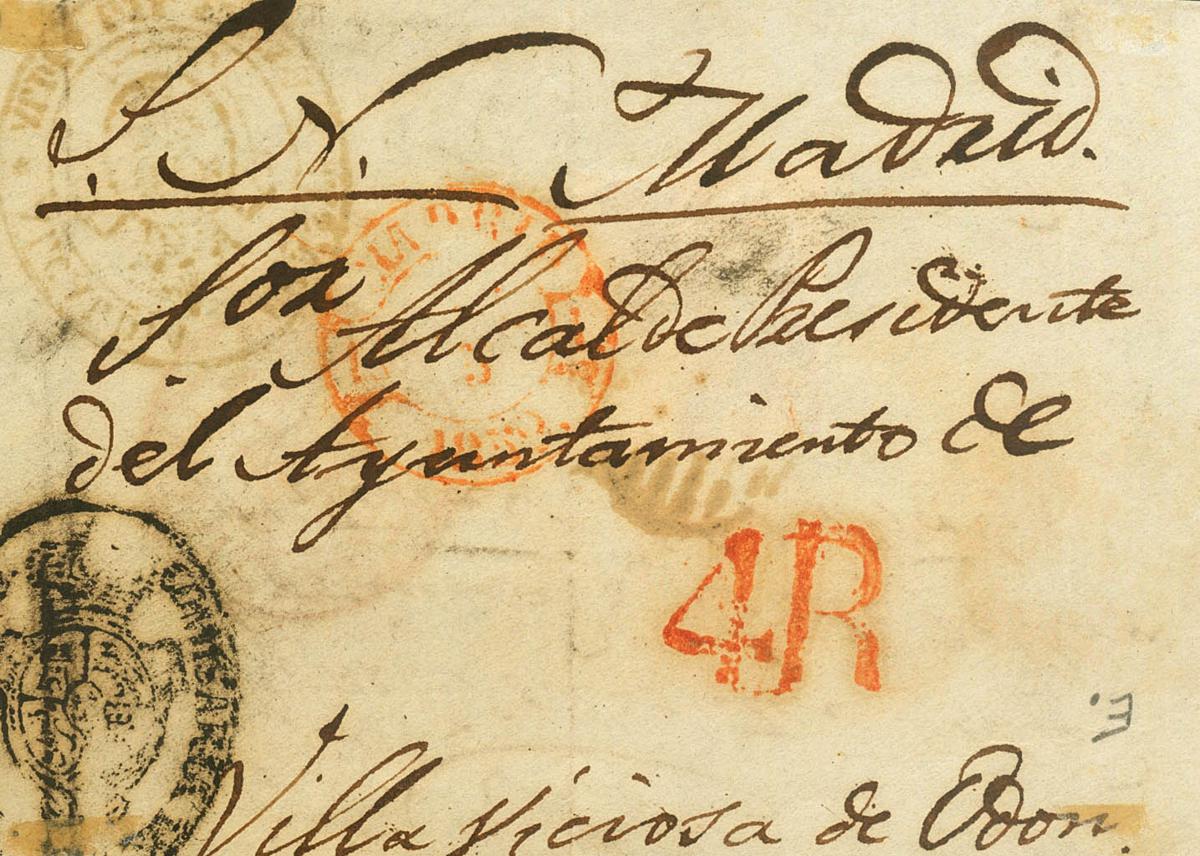 S. N. Madrid.
Sor. Alcalde Presidente
del Ayuntamiento de
4R
E.
Villaviciosa de Odon.